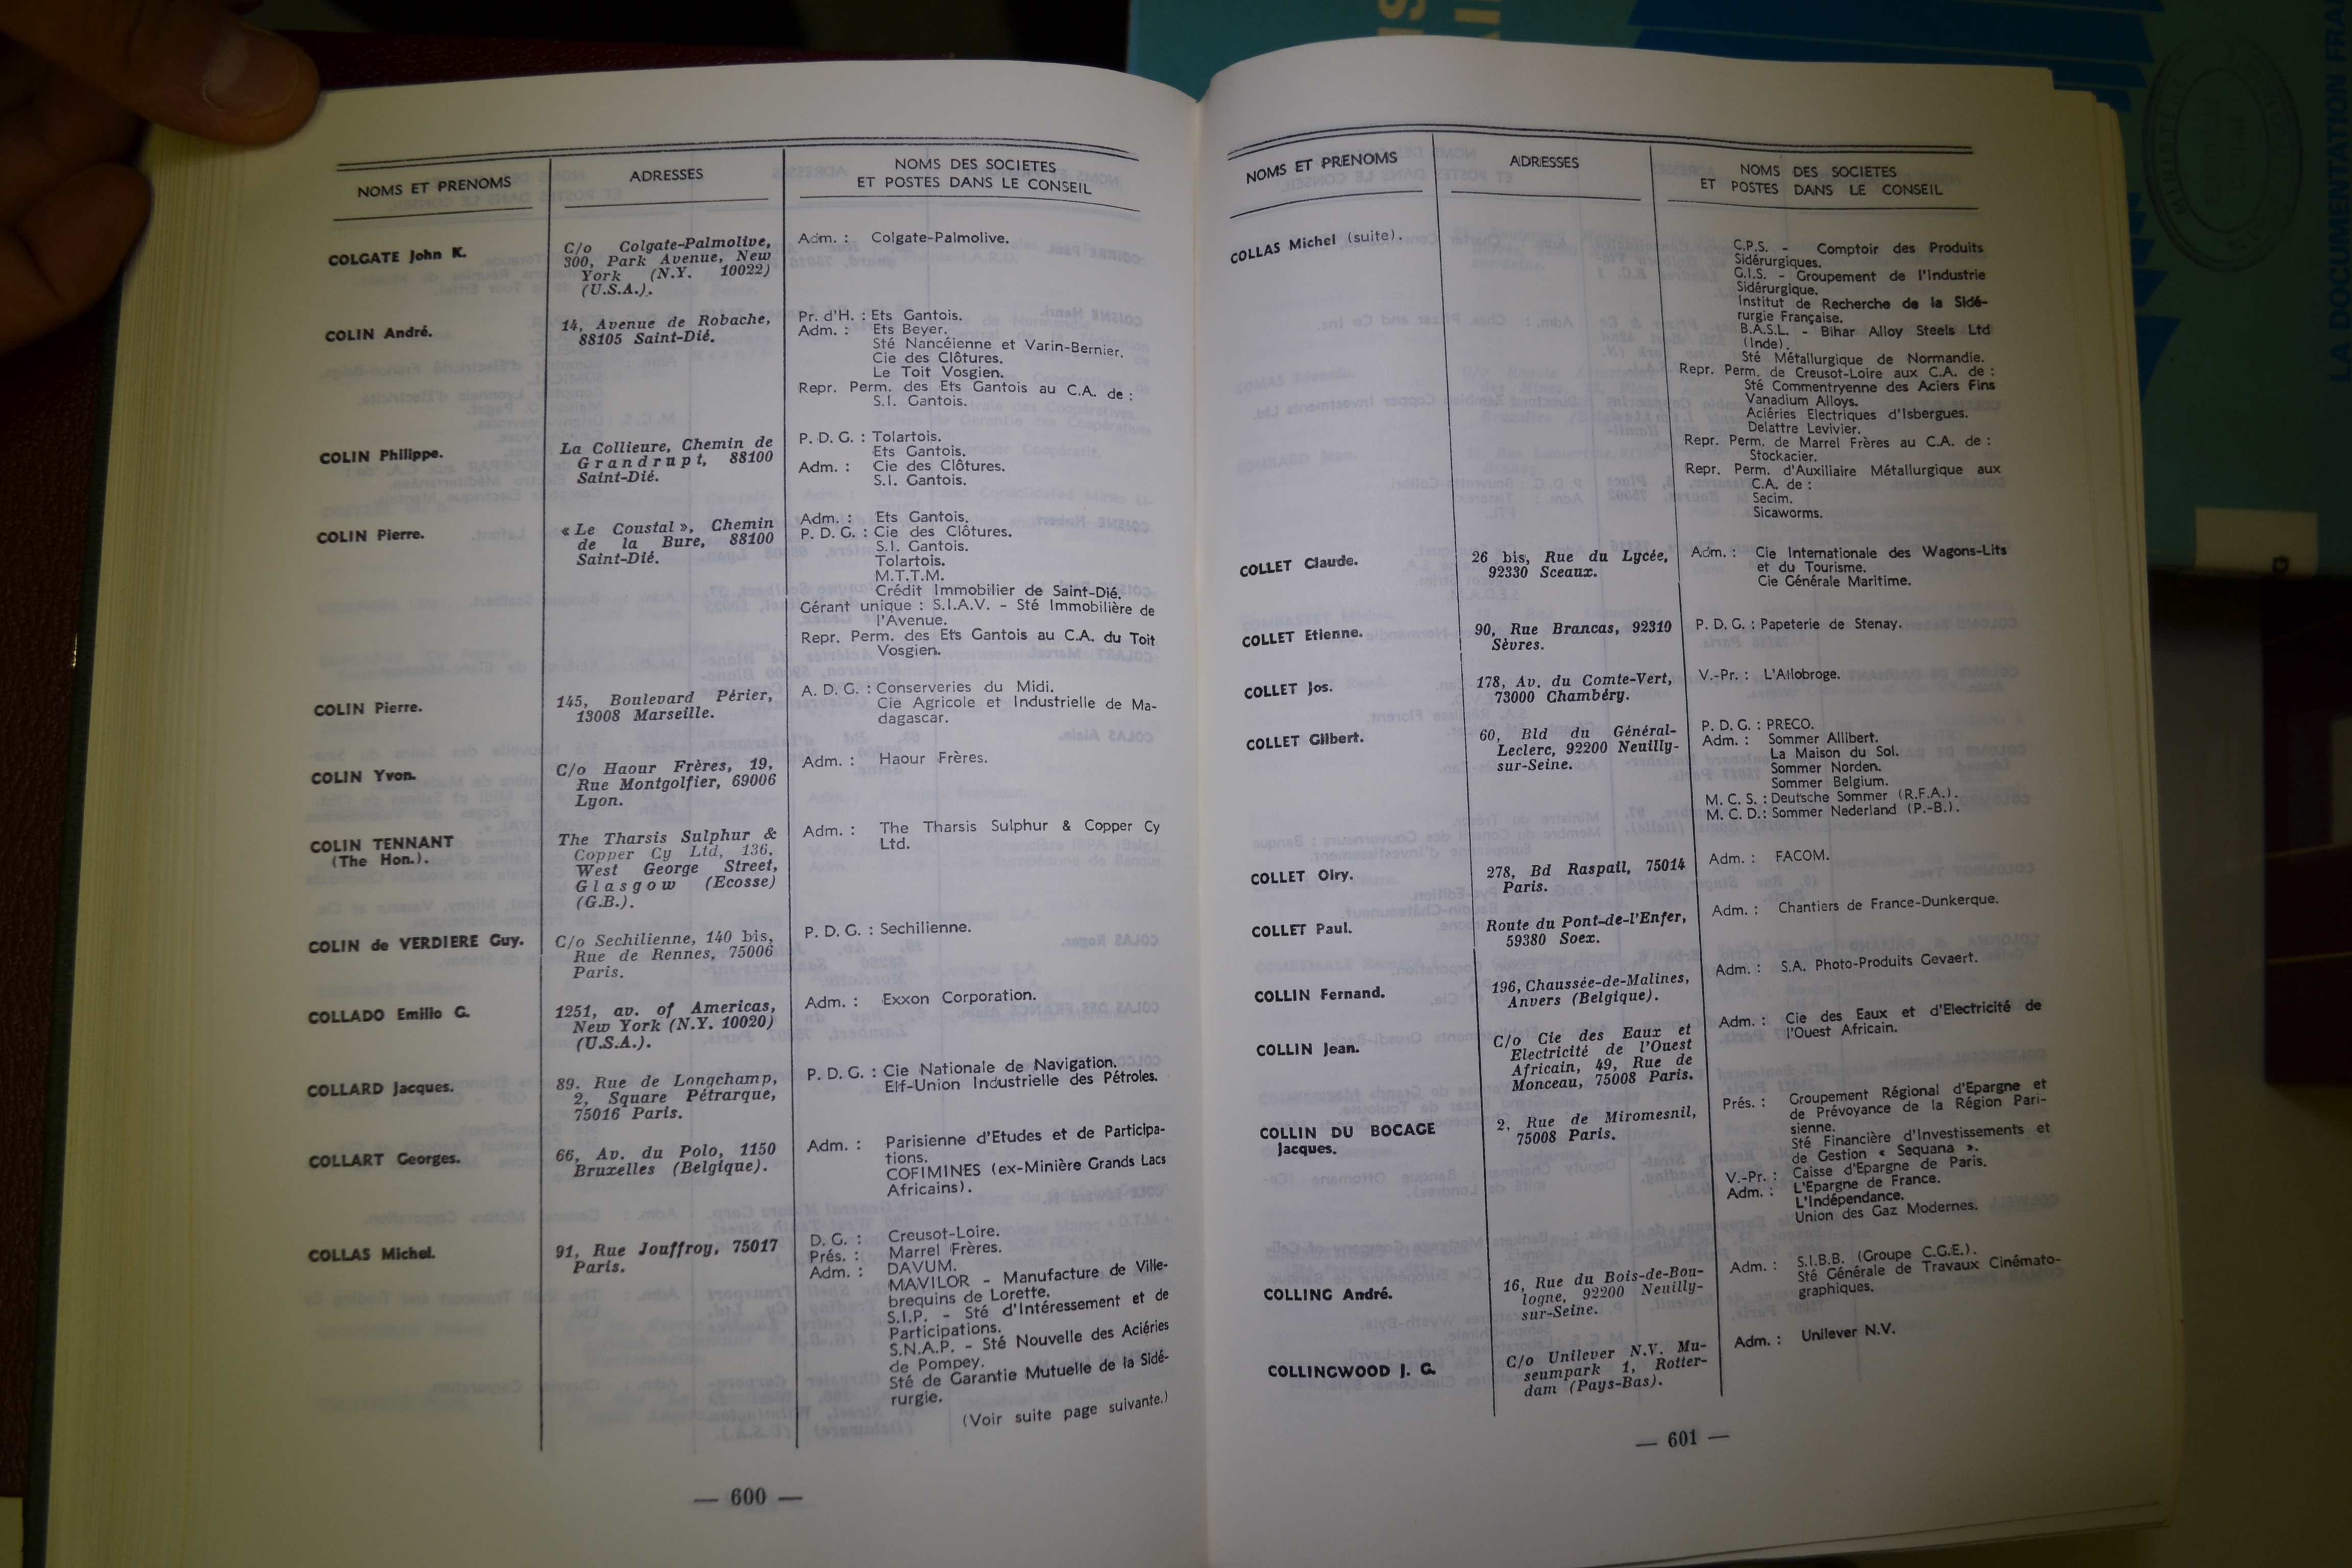 NOMS ET PRENOMS
ADRESSES
NOMS DES SOCIETES
ET POSTES DANS LE CONSEIL
COLGATE John K.
C/o Colgate-Palmolive,
300, Park Avenue, New
York (N.Y. 10022)
(U.S.A.).
Adm. : Colgate-Palmolive.
COLIN André.
14, Avenue de Robache,
88105 Saint-Dié.
Pr. d'H. : Ets Gantois.
Adm. : Ets Beyer.
Sté Nancéienne et Varin-Bernier.
Cie des Clôtures.
Le Toit Vosgien.
Repr. Perm. des Ets Gantois au C.A. de :
S.I. Gantois.
COLIN Philippe.
La Collieure, Chemin de
Grandrupt, 88100
Saint-Dié.
P. D. G. : Tolartois.
Ets Gantois.
Adm. : Cie des Clôtures.
S.I. Gantois.
COLIN Pierre.
« Le Coustal », Chemin
de la Bure, 88100
Saint-Dié.
Adm. : Ets Gantois.
P. D. G. : Cie des Clôtures.
S.I. Gantois.
Tolartois.
M.T.T.M.
Crédit Immobilier de Saint-Dié.
Gérant unique : S.I.A.V. - Sté Immobilière de
l'Avenue.
Repr. Perm. des Ets Gantois au C.A. du Toit
Vosgien.
COLIN Pierre.
145, Boulevard Périer,
13008 Marseille.
A. D. G. : Conserveries du Midi.
Cie Agricole et Industrielle de Ma-
dagascar.
COLIN Yvon.
C/o Haour Frères, 19,
Rue Montgolfier, 69006
Lyon.
Adm. : Haour Frères.
COLIN TENNANT
(The Hon.).
The Tharsis Sulphur &
Copper Cy Ltd, 136,
West George Street,
Glasgow (Ecosse)
(G.B.).
Adm. : The Tharsis Sulphur & Copper Cy
Ltd.
COLIN de VERDIERE Guy.
C/o Sechilienne, 140 bis,
Rue de Rennes, 75006
Paris.
P. D. G. : Sechilienne.
COLLADO Emilio G.
1251, av. of Americas,
New York (N.Y. 10020)
(U.S.A.).
Adm. : Exxon Corporation.
COLLARD Jacques.
89. Rue de Longchamp,
2, Square Pétrarque,
75016 Paris.
P. D. G. : Cie Nationale de Navigation.
Elf-Union Industrielle des Pétroles.
COLLART Georges.
66, Av. du Polo, 1150
Bruxelles (Belgique).
Adm. : Parisienne d'Etudes et de Participa-
tions.
COFIMINES (ex-Minière Grands Lacs
Africains).
COLLAS Michel.
91, Rue Jouffroy, 75017
Paris.
D. G. : Creusot-Loire.
Prés. : Marrel Frères.
Adm. : DAVUM.
MAVILOR - Manufacture de Ville-
brequins de Lorette.
S.I.P. - Sté d'Intéressement et de
Participations.
S.N.A.P. - Sté Nouvelle des Aciéries
de Pompey.
Sté de Garantie Mutuelle de la Sidé-
rurgie.
(Voir suite page suivante.)
— 600 —
NOMS ET PRENOMS
ADRESSES
NOMS DES SOCIETES
ET POSTES DANS LE CONSEIL
COLLAS Michel (suite).
C.P.S. - Comptoir des Produits
Sidérurgiques.
G.I.S. - Groupement de l'Industrie
Sidérurgique.
Institut de Recherche de la Sidé-
rurgie Française.
B.A.S.L. - Bihar Alloy Steels Ltd
(Inde).
Sté Métallurgique de Normandie.
Repr. Perm. de Creusot-Loire aux C.A. de :
Sté Commentryenne des Aciers Fins
Vanadium Alloys.
Aciéries Electriques d'Isbergues.
Delattre Levivier.
Repr. Perm. de Marrel Frères au C.A. de :
Stockacier.
Repr. Perm. d'Auxiliaire Métallurgique aux
C.A. de :
Secim.
Sicaworms.
COLLET Claude.
26 bis, Rue du Lycée,
92330 Sceaux.
Adm. : Cie Internationale des Wagons-Lits
et du Tourisme.
Cie Générale Maritime.
COLLET Etienne.
90, Rue Brancas, 92310
Sèvres.
P. D. G. : Papeterie de Stenay.
COLLET Jos.
178, Av. du Comte-Vert,
73000 Chambéry.
V.-Pr. : L'Allobroge.
COLLET Gilbert.
60, Bld du Général-
Leclerc, 92200 Neuilly-
sur-Seine.
P. D. G. : PRECO.
Adm. : Sommer Allibert.
La Maison du Sol.
Sommer Norden.
Sommer Belgium.
M. C. S. : Deutsche Sommer (R.F.A.).
M. C. D. : Sommer Nederland (P.-B.).
COLLET Olry.
278, Bd Raspail, 75014
Paris.
Adm. : FACOM.
COLLET Paul.
Route du Pont-de-l'Enfer,
59380 Soex.
Adm. : Chantiers de France-Dunkerque.
COLLIN Fernand.
196, Chaussée-de-Malines,
Anvers (Belgique).
Adm. : S.A. Photo-Produits Gevaert.
COLLIN Jean.
C/o Cie des Eaux et
Electricité de l'Ouest
Africain, 49, Rue de
Monceau, 75008 Paris.
Adm. : Cie des Eaux et d'Electricité de
l'Ouest Africain.
COLLIN DU BOCAGE
Jacques.
2, Rue de Miromesnil,
75008 Paris.
Prés. : Groupement Régional d'Epargne et
de Prévoyance de la Région Pari-
sienne.
Sté Financière d'Investissements et
de Gestion « Sequana ».
V.-Pr. : Caisse d'Epargne de Paris.
Adm. : L'Epargne de France.
L'Indépendance.
Union des Gaz Modernes.
COLLING André.
16, Rue du Bois-de-Bou-
logne, 92200 Neuilly-
sur-Seine.
Adm. : S.I.B.B. (Groupe C.G.E.).
Sté Générale de Travaux Cinémato-
graphiques.
COLLINGWOOD J. G.
C/o Unilever N.V. Mu-
seumpark 1, Rotter-
dam (Pays-Bas).
Adm. : Unilever N.V.
— 601 —
LA DOCUMENTATION FRA